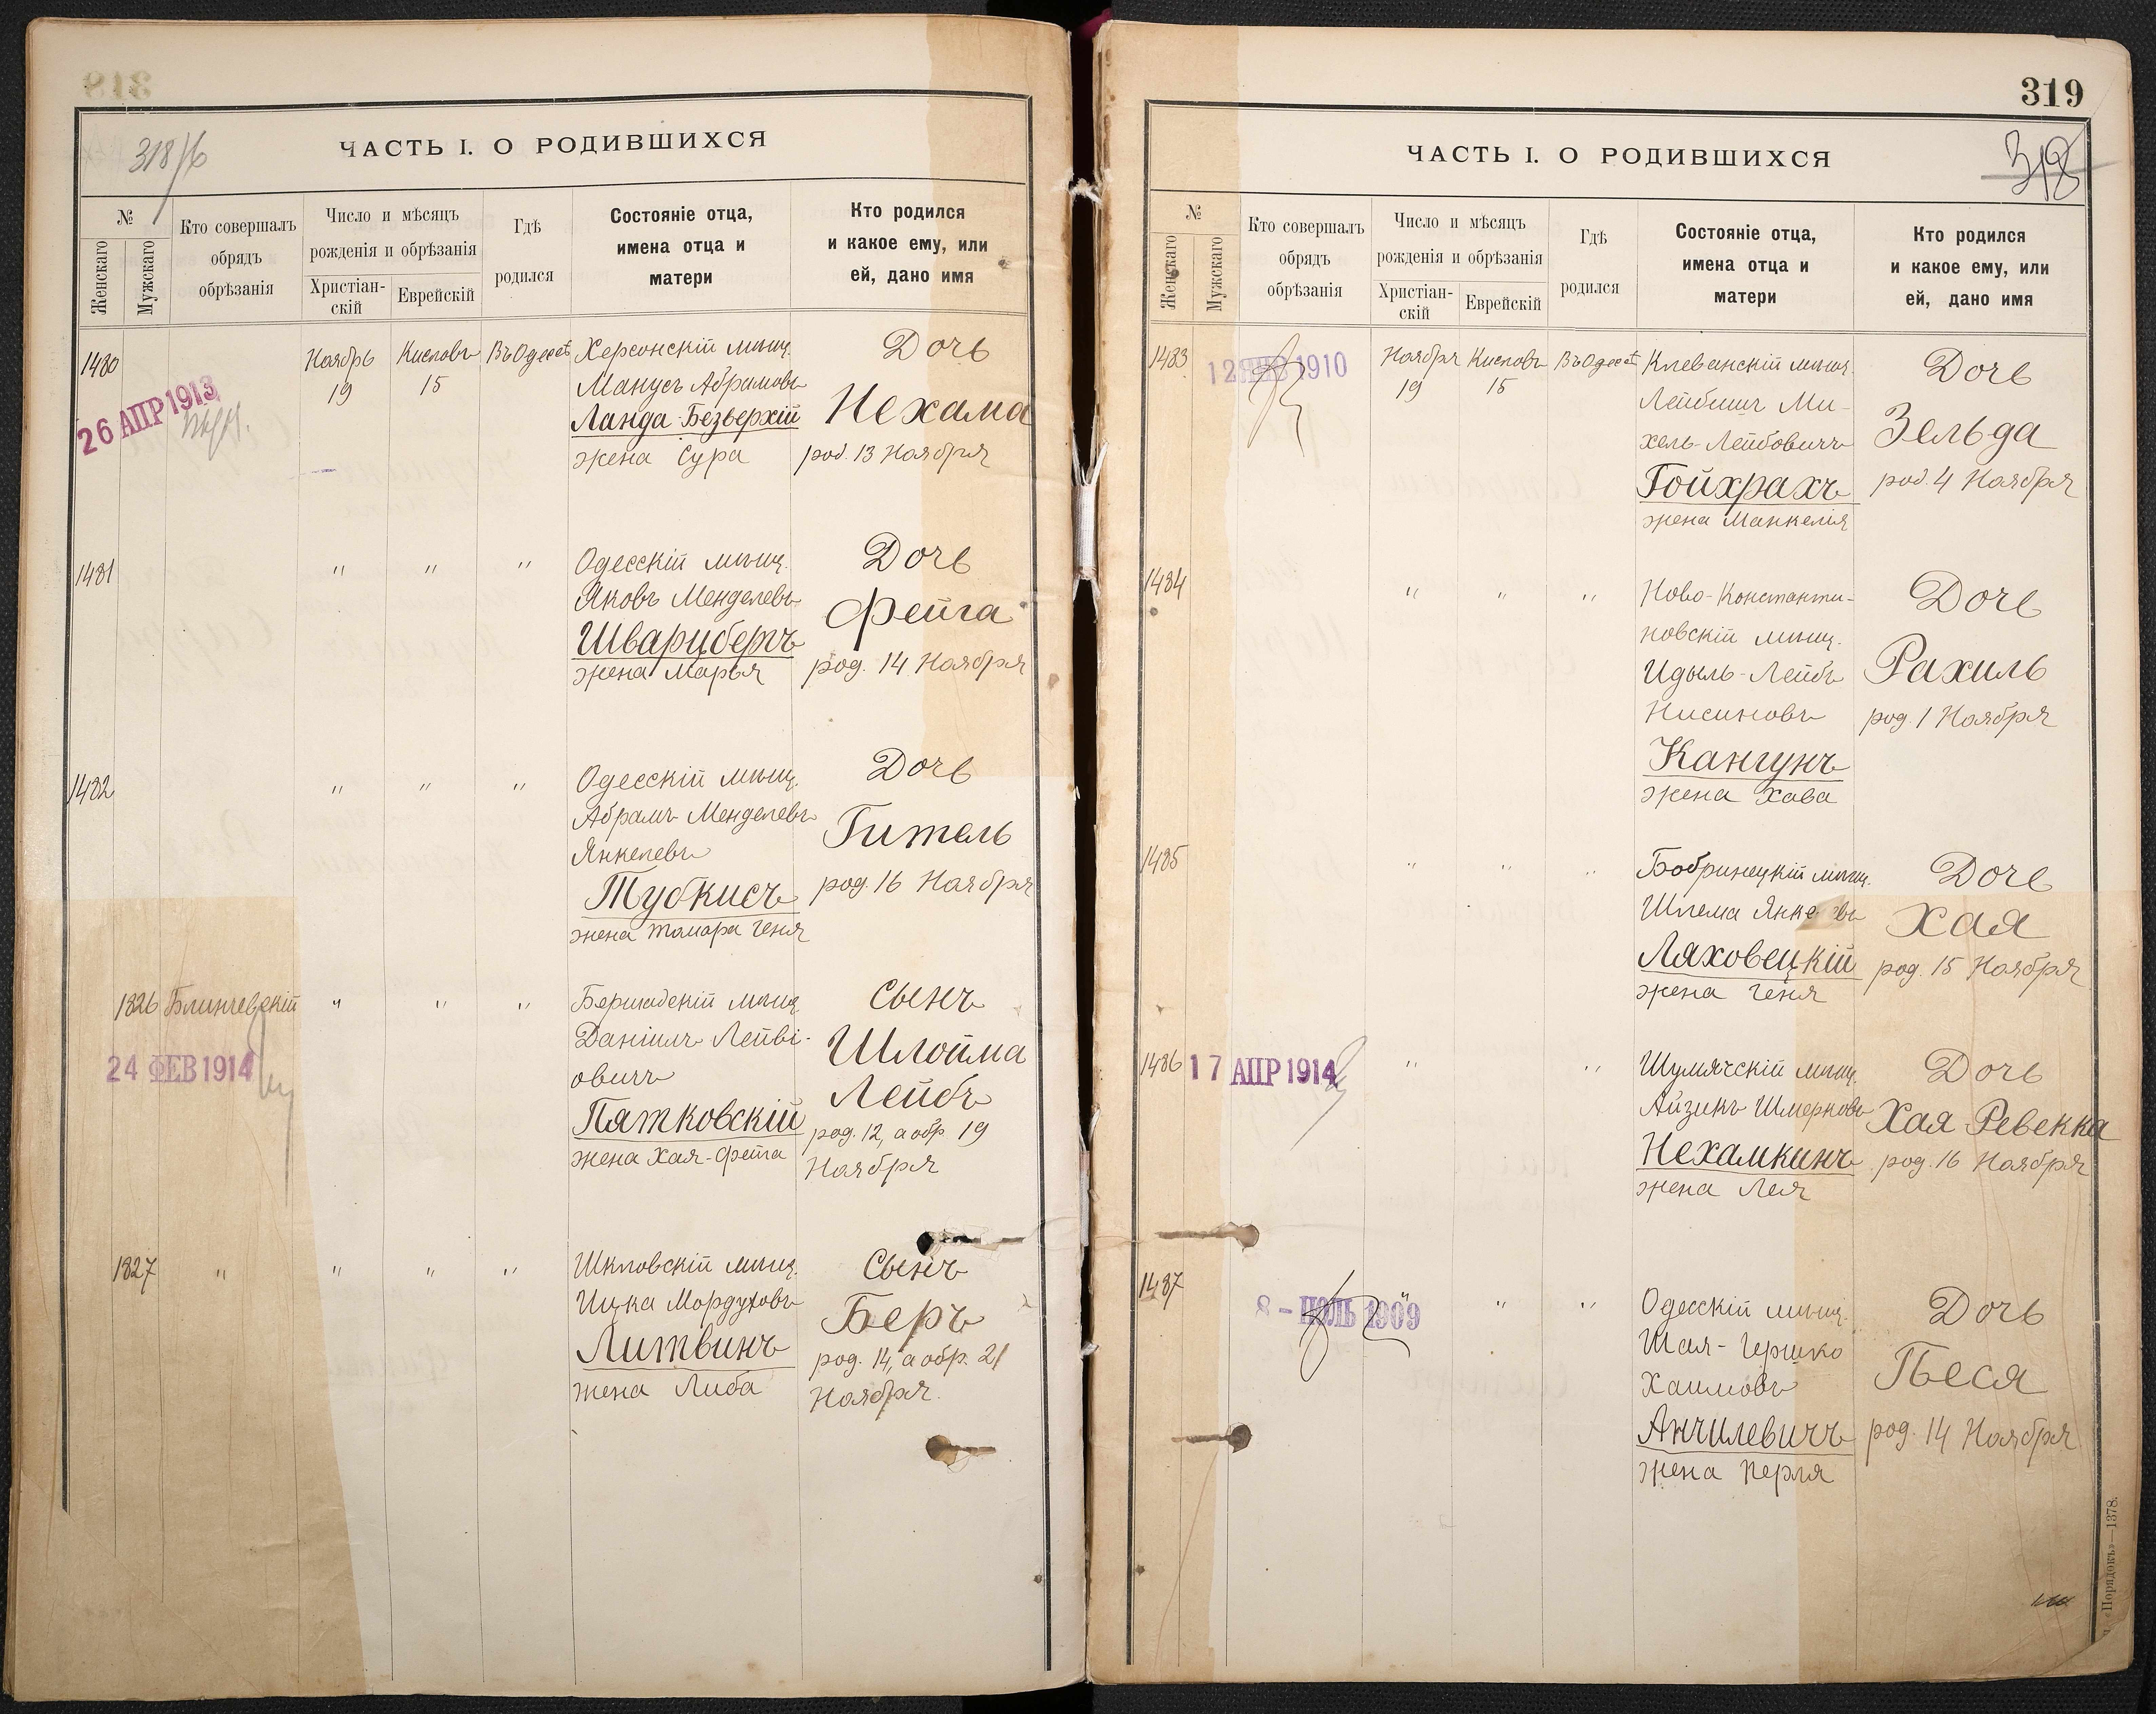 318
318/б
ЧАСТЬ I. О РОДИВШИХСЯ
№
Женскаго
Мужскаго
Кто совершалъ
обрядъ
обрѣзанія
Число и мѣсяцъ
рожденія и обрѣзанія
Христіан-
скій
Еврейскій
Гдѣ
родился
Состояніе отца,
имена отца и
матери
Кто родился
и какое ему, или
ей, дано имя
1480
26 АПР 1913
Ноябрь
19
Кислевъ
15
Въ Одессѣ
Херсонскій мѣщ.
Манусъ Абрамовъ
Ланда-Безверхій
жена Сура
Дочь
Нехама
род. 13 Ноября
1481
" " "
Одесскій мѣщ.
Яковъ Менделевъ
Шварцбергъ
жена Марья
Дочь
Фейга
род. 14 Ноября
1482
" " "
Одесскій мѣщ.
Абрамъ Менделевъ
Янкелевъ
Тубкисъ
жена Тамара Геня
Дочь
Гитель
род. 16 Ноября
1826
Блиндевскій
24 ФЕВ 1914
" " "
Бершадскій мѣщ.
Даніилъ Лейви-
овичъ
Пятковскій
жена Хая-Фейга
Сынъ
Шлойма
Лейбъ
род. 12, а обр. 19
Ноября
1827
" " " "
Шкловскій мѣщ.
Ицка Мордуховъ
Литвинъ
жена Либа
Сынъ
Беръ
род. 14, а обр. 21
Ноября.
319
318
ЧАСТЬ I. О РОДИВШИХСЯ
№
Женскаго
Мужскаго
Кто совершалъ
обрядъ
обрѣзанія
Число и мѣсяцъ
рожденія и обрѣзанія
Христіан-
скій
Еврейскій
Гдѣ
родился
Состояніе отца,
имена отца и
матери
Кто родился
и какое ему, или
ей, дано имя
1483
12 ЯНВ 1910
Ноября
19
Кислевъ
15
Въ Одессѣ
Клеванскій мѣщ.
Лейбишъ Ми-
хель-Лейбовичъ
Гойхрахъ
жена Манкелія
Дочь
Зельда
род. 4 Ноября
1484
" " "
Ново-Константи-
новскій мѣщ.
Идыль-Лейбъ
Нисиновъ
Кангунъ
жена Хава
Дочь
Рахиль
род. 1 Ноября
1485
" " "
Бобринецкій мѣщ.
Шлема Янке въ
Ляховецкій
жена Геня
Дочь
Хая
род. 15 Ноября
1486
17 АПР 1914
" "
Шумячскій мѣщ.
Айзикъ Шмерковъ
Нехамкинъ
жена Лея
Дочь
Хая Ревекка
род. 16 Ноября
1487
8 - ІЮЛЬ 1909
" " "
Одесскій мѣщ.
Шая-Гершко
Хаимовъ
Анчилевичъ
жена Перля
Дочь
Песя
род. 14 Ноября
«Порядокъ»—1378.